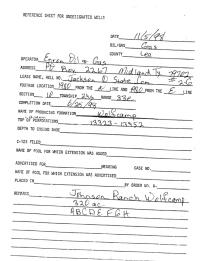 REFERENCE SHEET FOR UNDESIGNATED WELLS
DATE 11/5/99
OIL/GAS Gas
COUNTY Lea
OPERATOR Enron Oil & Gas
ADDRESS PO Box 2267 Midland Tx 79702
LEASE NAME, WELL NO. Jackson State Com
FOOTAGE LOCATION FROM THE N LINE AND FROM THE E LINE
SECTION 10 TOWNSHIP 24s RANGE 33e
COMPLETION DATE 6/25/99
NAME OF PRODUCING FORMATION Wolfcamp
TOP OF PERFORATIONS 13323-13352
DEPTH TO CASING SHOE
C-123 FILED
NAME OF POOL FOR WHICH EXTENSION WAS ADDED
ADVERTISED FOR HEARING CASE NO.
NAME OF POOL FOR WHICH EXTENSION WAS ADVERTISED
PLACED IN BY ORDER NO. R-
REMARKS Johnson Ranch Wolfcamp
320 ac.
ABCDEFGH